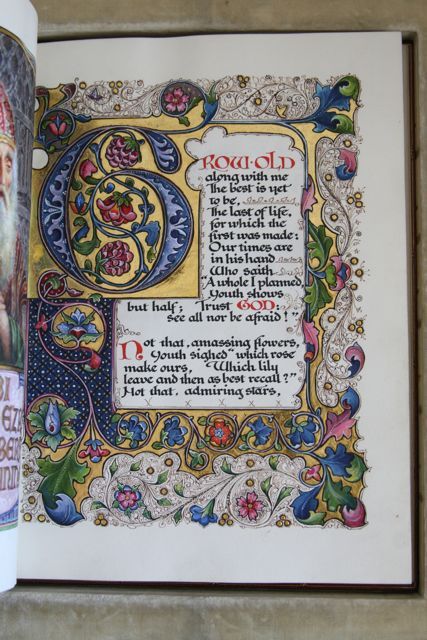 GROW·OLD
along with me
The best is yet
to be,
The last of life,
for which the
first was made:
Our times are
in his hand
Who saith
"A whole I planned,
Youth shows
but half; Trust GOD:
see all nor be afraid!"
Not that, amassing flowers,
Youth sighed "which rose
make ours, Which lily
leave and then as best recall?"
Not that, admiring stars,